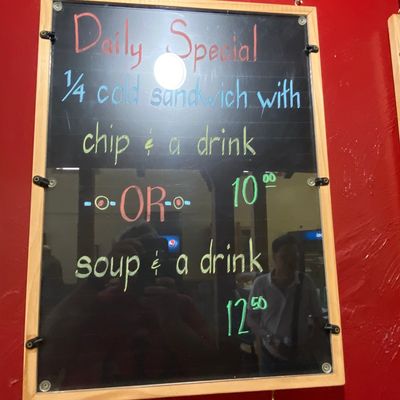 Daily Special
1/4 cold sandwich with
chip & a drink
OR 10 00
soup & a drink
12 50